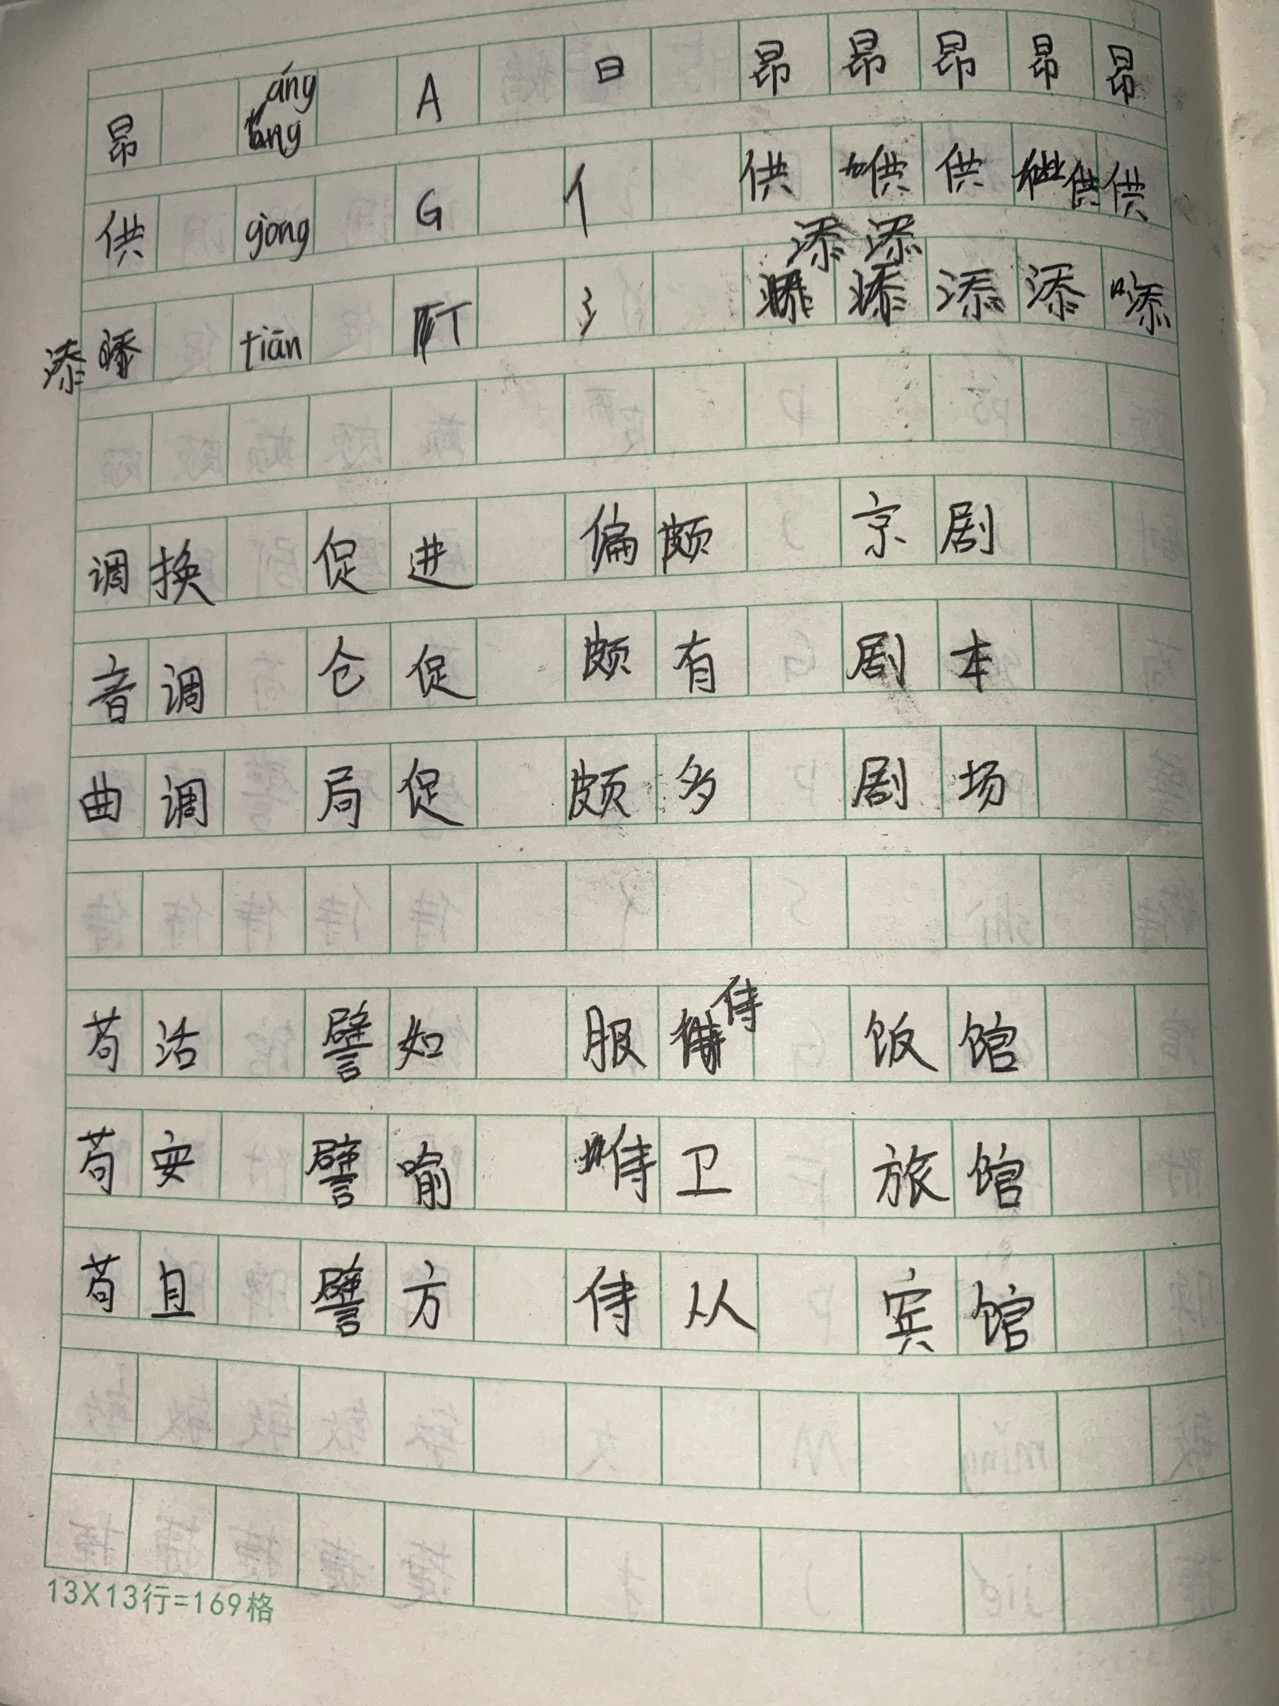 昂 áng A 日 昂 昂 昂 昂 昂
供 gòng G 亻 供 供 供 供 供
添 添
添 tiān T 氵 添 添 添
调换 促进 偏颇 京剧
音调 仓促 颇有 剧本
曲调 局促 颇多 剧场
苟活 譬如 服侍 饭馆
苟安 譬喻 侍卫 旅馆
苟且 譬方 侍从 宾馆
13X13行=169格